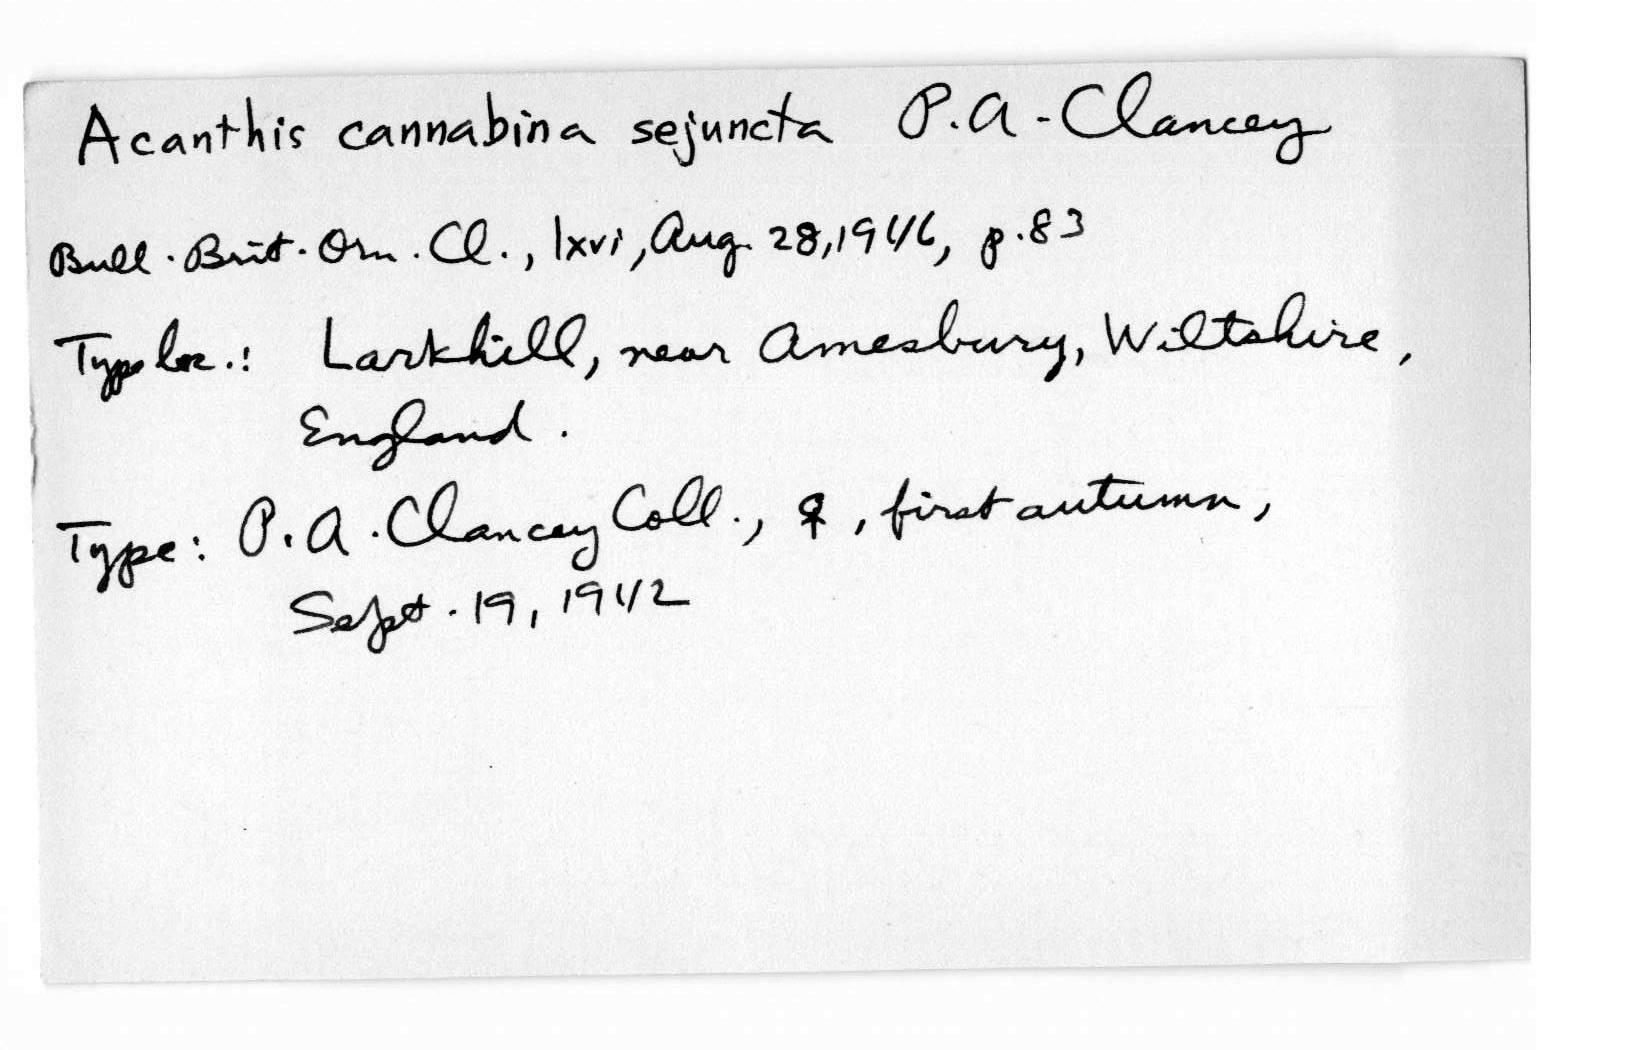 Acanthis cannabina sejuncta P.A. Clancey
Bull. Brit. Orn. Cl., lxvi, Aug. 28, 1946, p.83
Type loc.: Larkhill, near Amesbury, Wiltshire,
England.
Type: P.A. Clancey Coll., ♀, first autumn,
Sept. 19, 1942